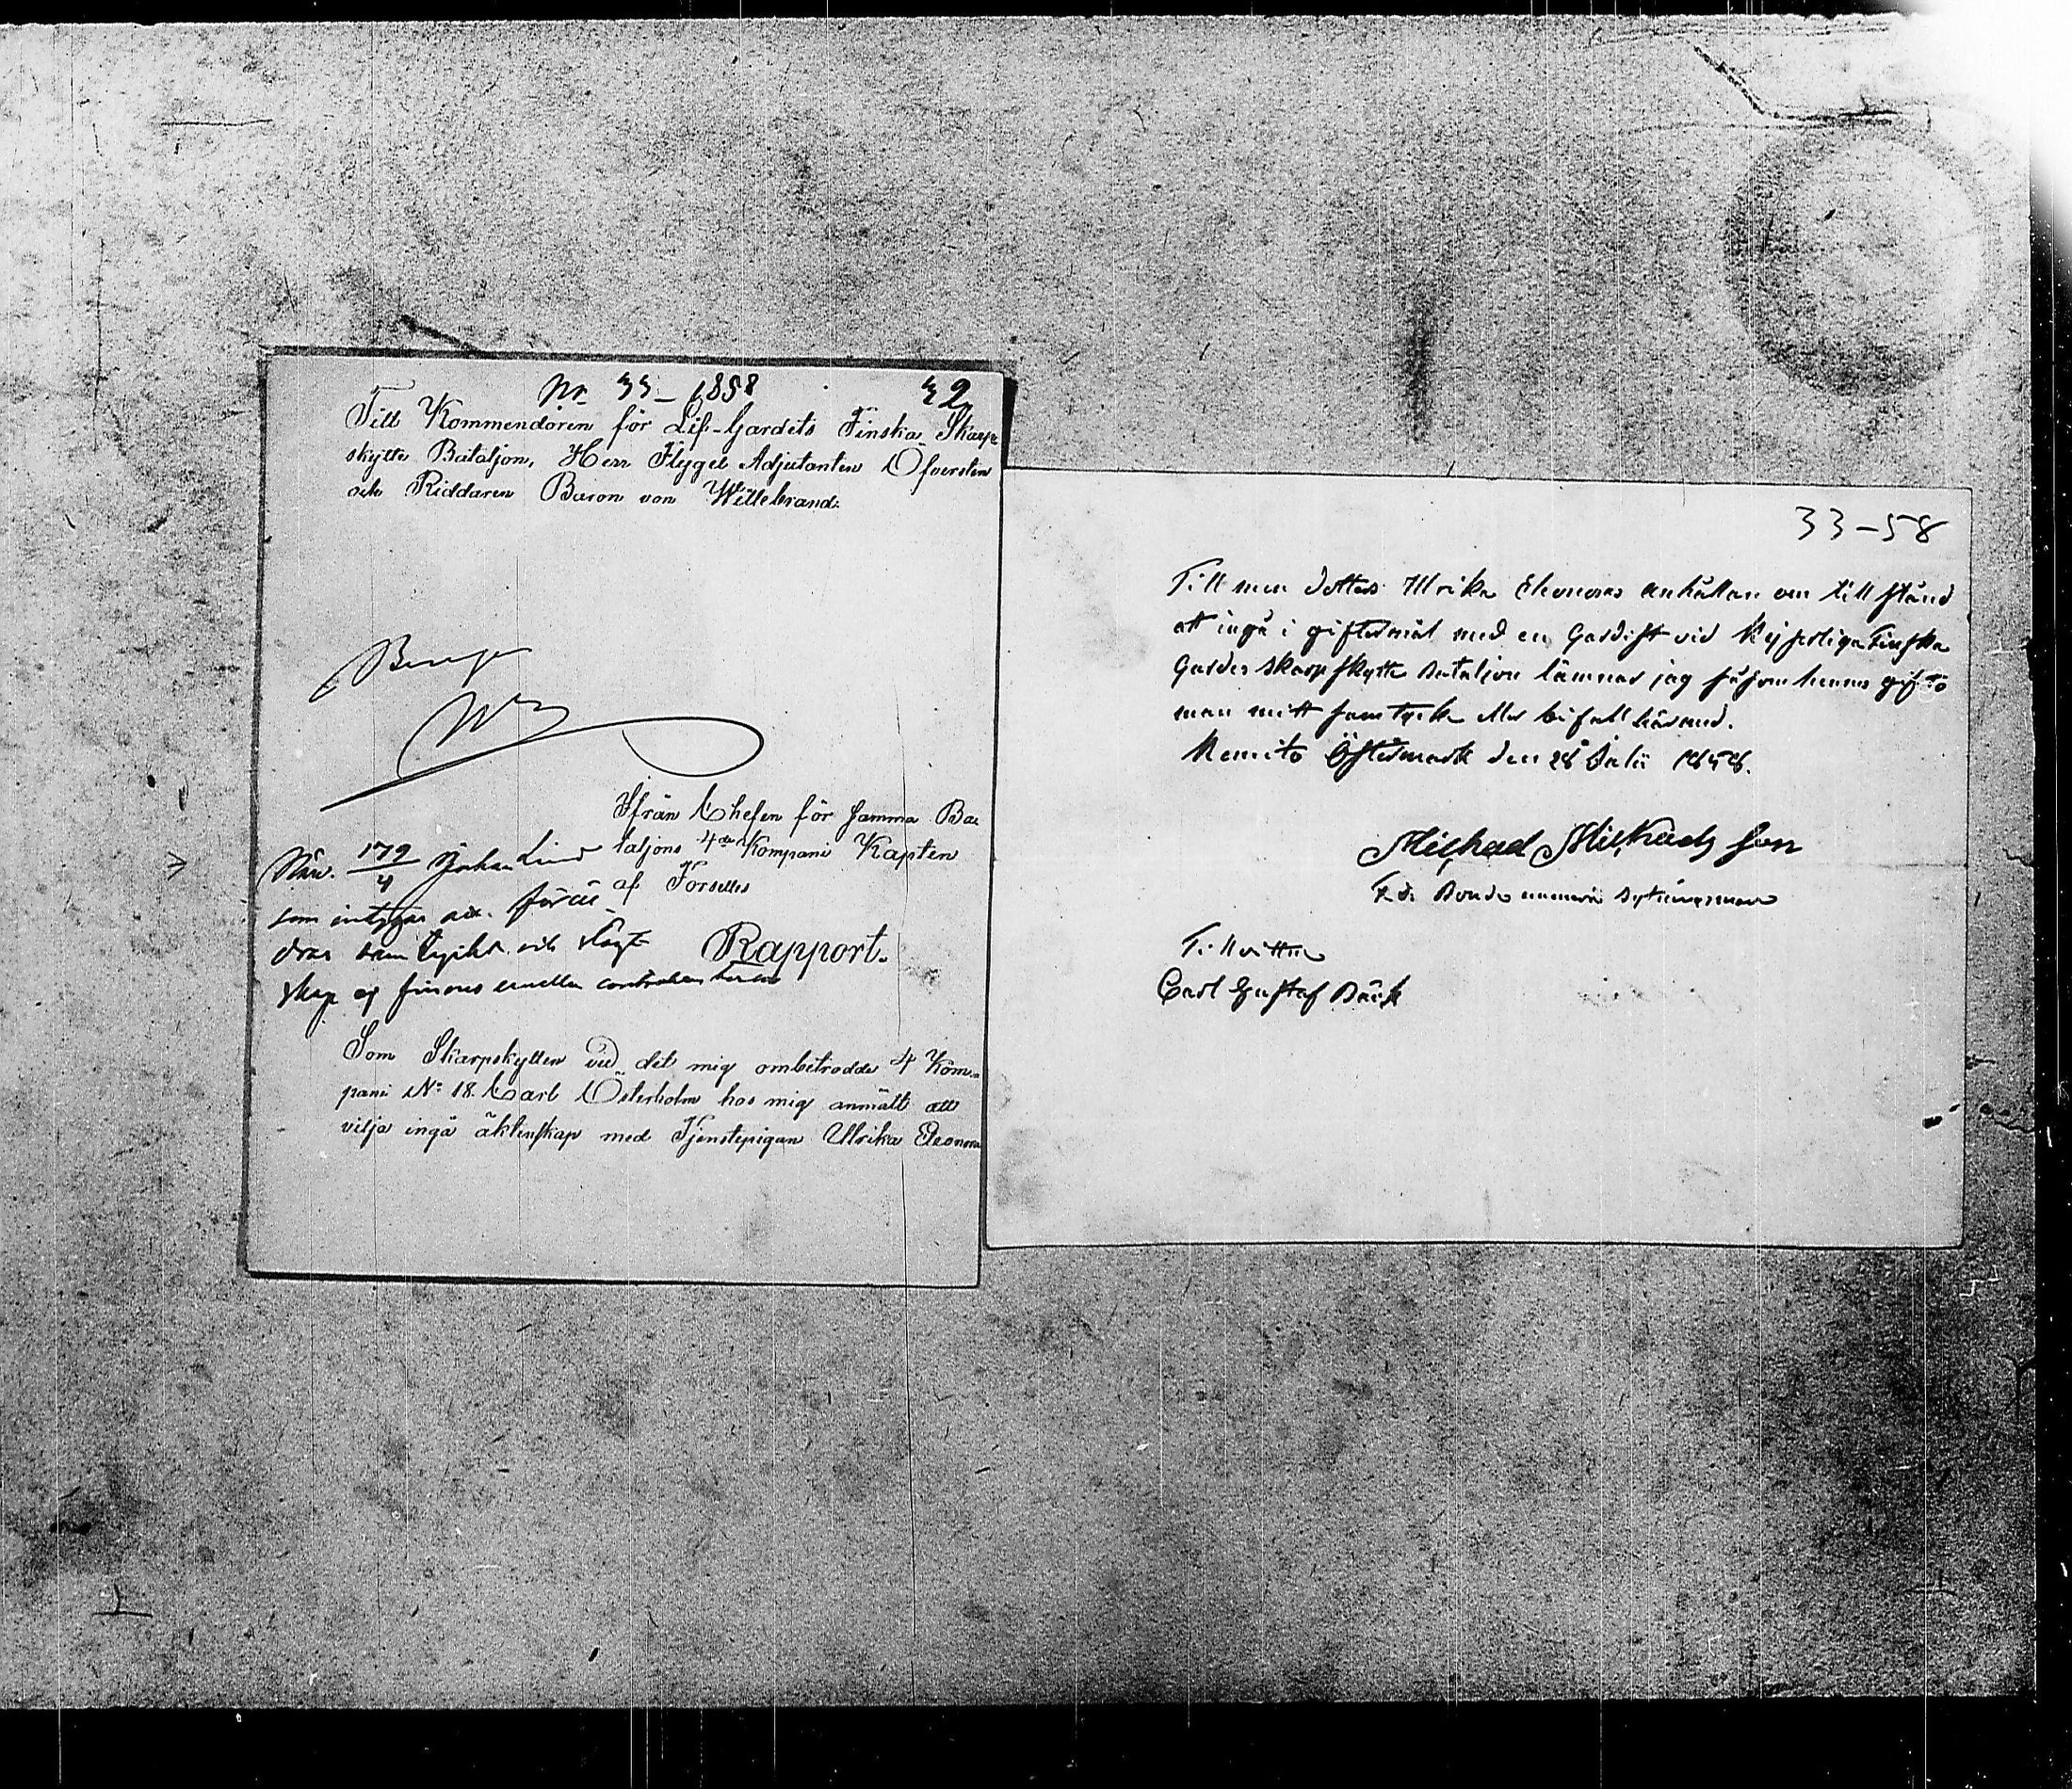 Nr. 33 – 1858 32
Till Kommendören för Lif-Gardets Finska Skarp-
skytte Bataljon, Herr Flygel Adjutanten Öfversten
och Riddaren Baron von Willebrand.
Ifrån Chefen för samma Ba-
taljons 4de Kompani Kapten
af Forselles
Rapport.
Närv. 179/4 Johan Lind
som intygar att föräl-
drar samtyckt och slägt-
skap ej finnes emellan contrahenterna
Som Skarpskytten vid det mig ombetrodde 4 Kom-
pani No 18. Carl Österholm hos mig anmält att
vilja ingå äktenskap med Tjenstepigan Ulrika Eleonora
33–58
Till min dotters Ulrika Eleonoras anhållan om tillstånd
att ingå i giftermål med en Gardist vid Kejserliga Finska
Gardes skarpskytte Bataljon lämnar jag såsom hennes gifto
man mitt samtycke eller bifall härmed.
Kemito Östermark den 28 Julii 1858.
Michael Michaels son
F.d. Bonde
Till vittne
Carl Gustaf Bäck